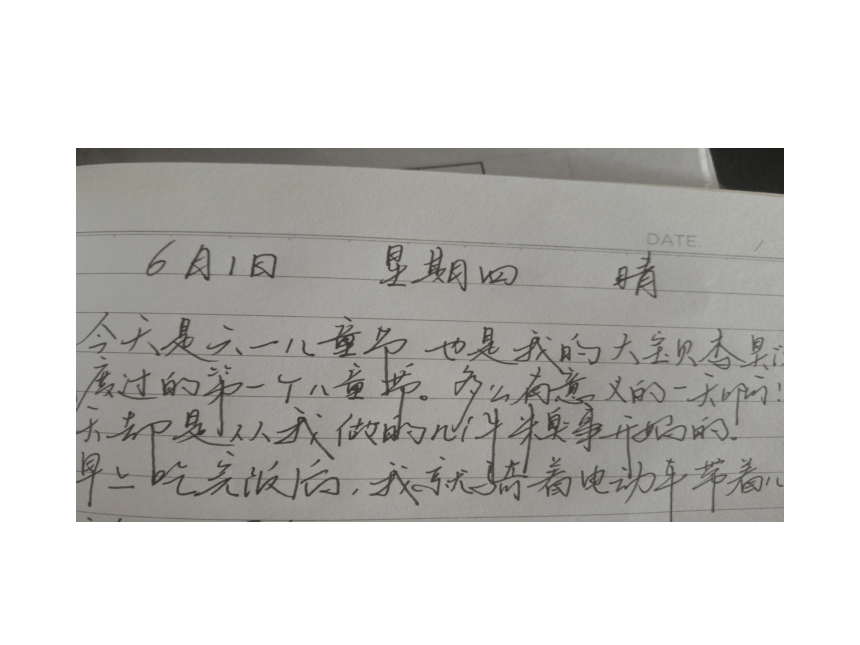 DATE. /
6月1日 星期四 晴
今天是六一儿童节 也是我的大宝贝李昊
度过的第一个儿童节。多么有意义的一天啊!
天却是从我做的几件糗事开始的.
早上吃完饭后,我就骑着电动车带着儿